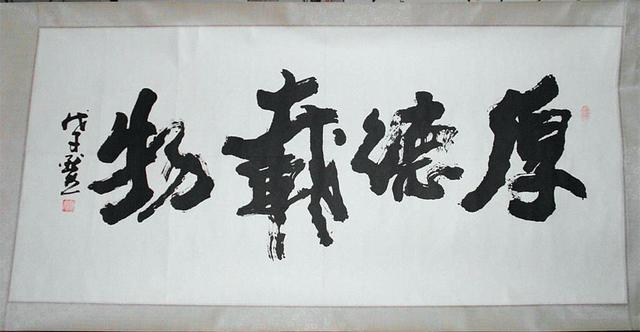 厚德载物
戊子